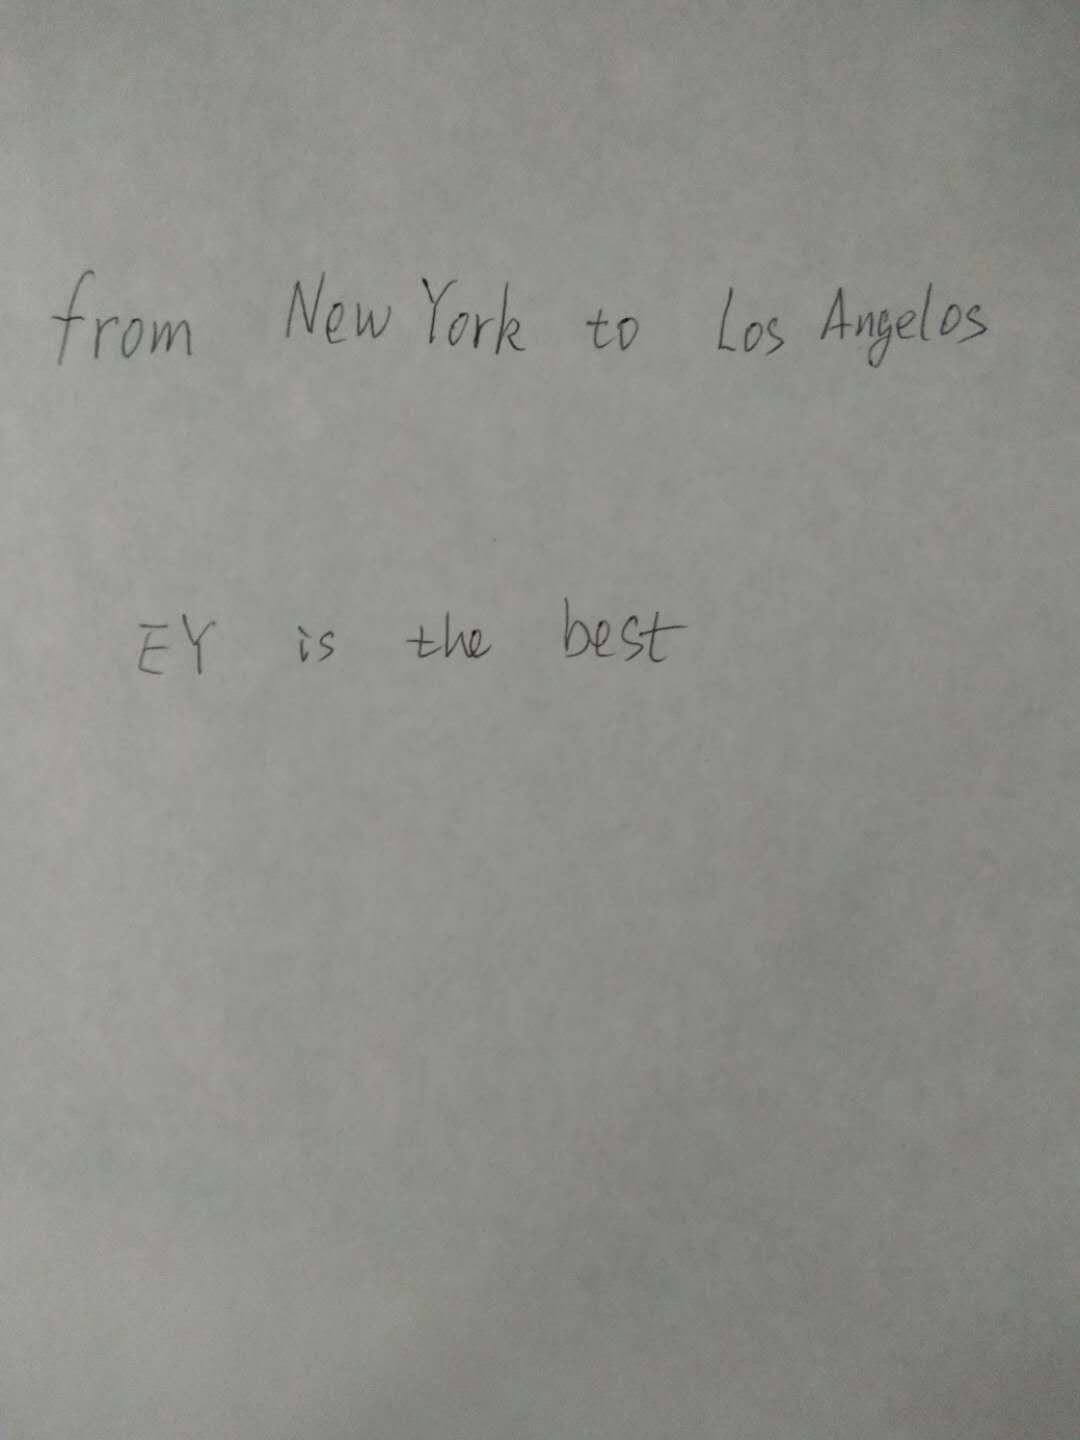 from New York to Los Angelos
EY is the best